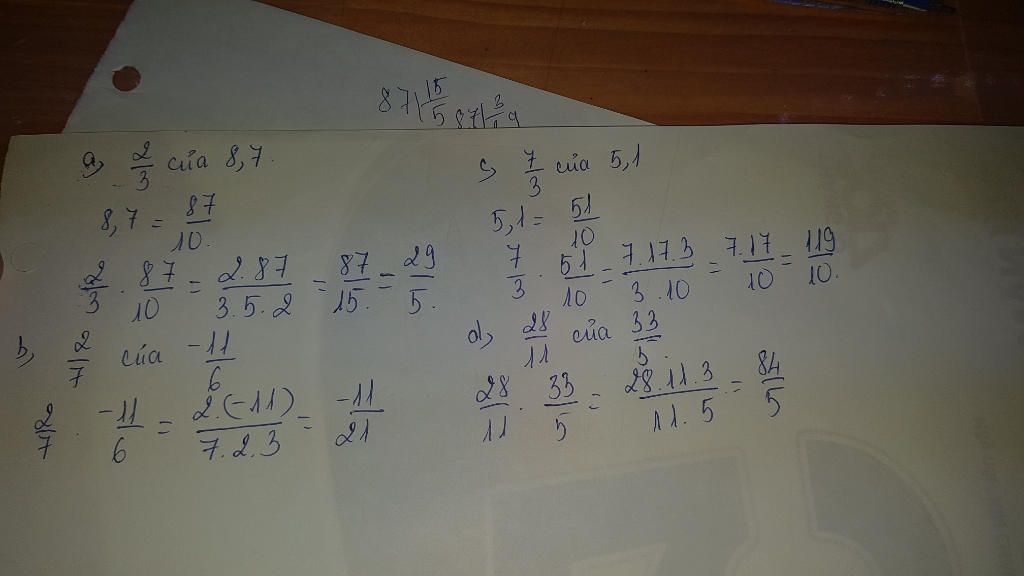 87 | 15
5
87 | 3
9
a, 2/3 của 8,7.
8,7 = 87/10.
2/3 . 87/10 = 2.87/3.5.2 = 87/15. = 29/5.
b, 2/7 của -11/6
2/7 . -11/6 = 2.(-11)/7.2.3 = -11/21
c, 7/3 của 5,1
5,1 = 51/10
7/3 . 51/10 = 7.17.3/3.10 = 7.17/10 = 119/10.
d, 28/11 của 33/5.
28/11 . 33/5 = 28.11.3/11.5 = 84/5